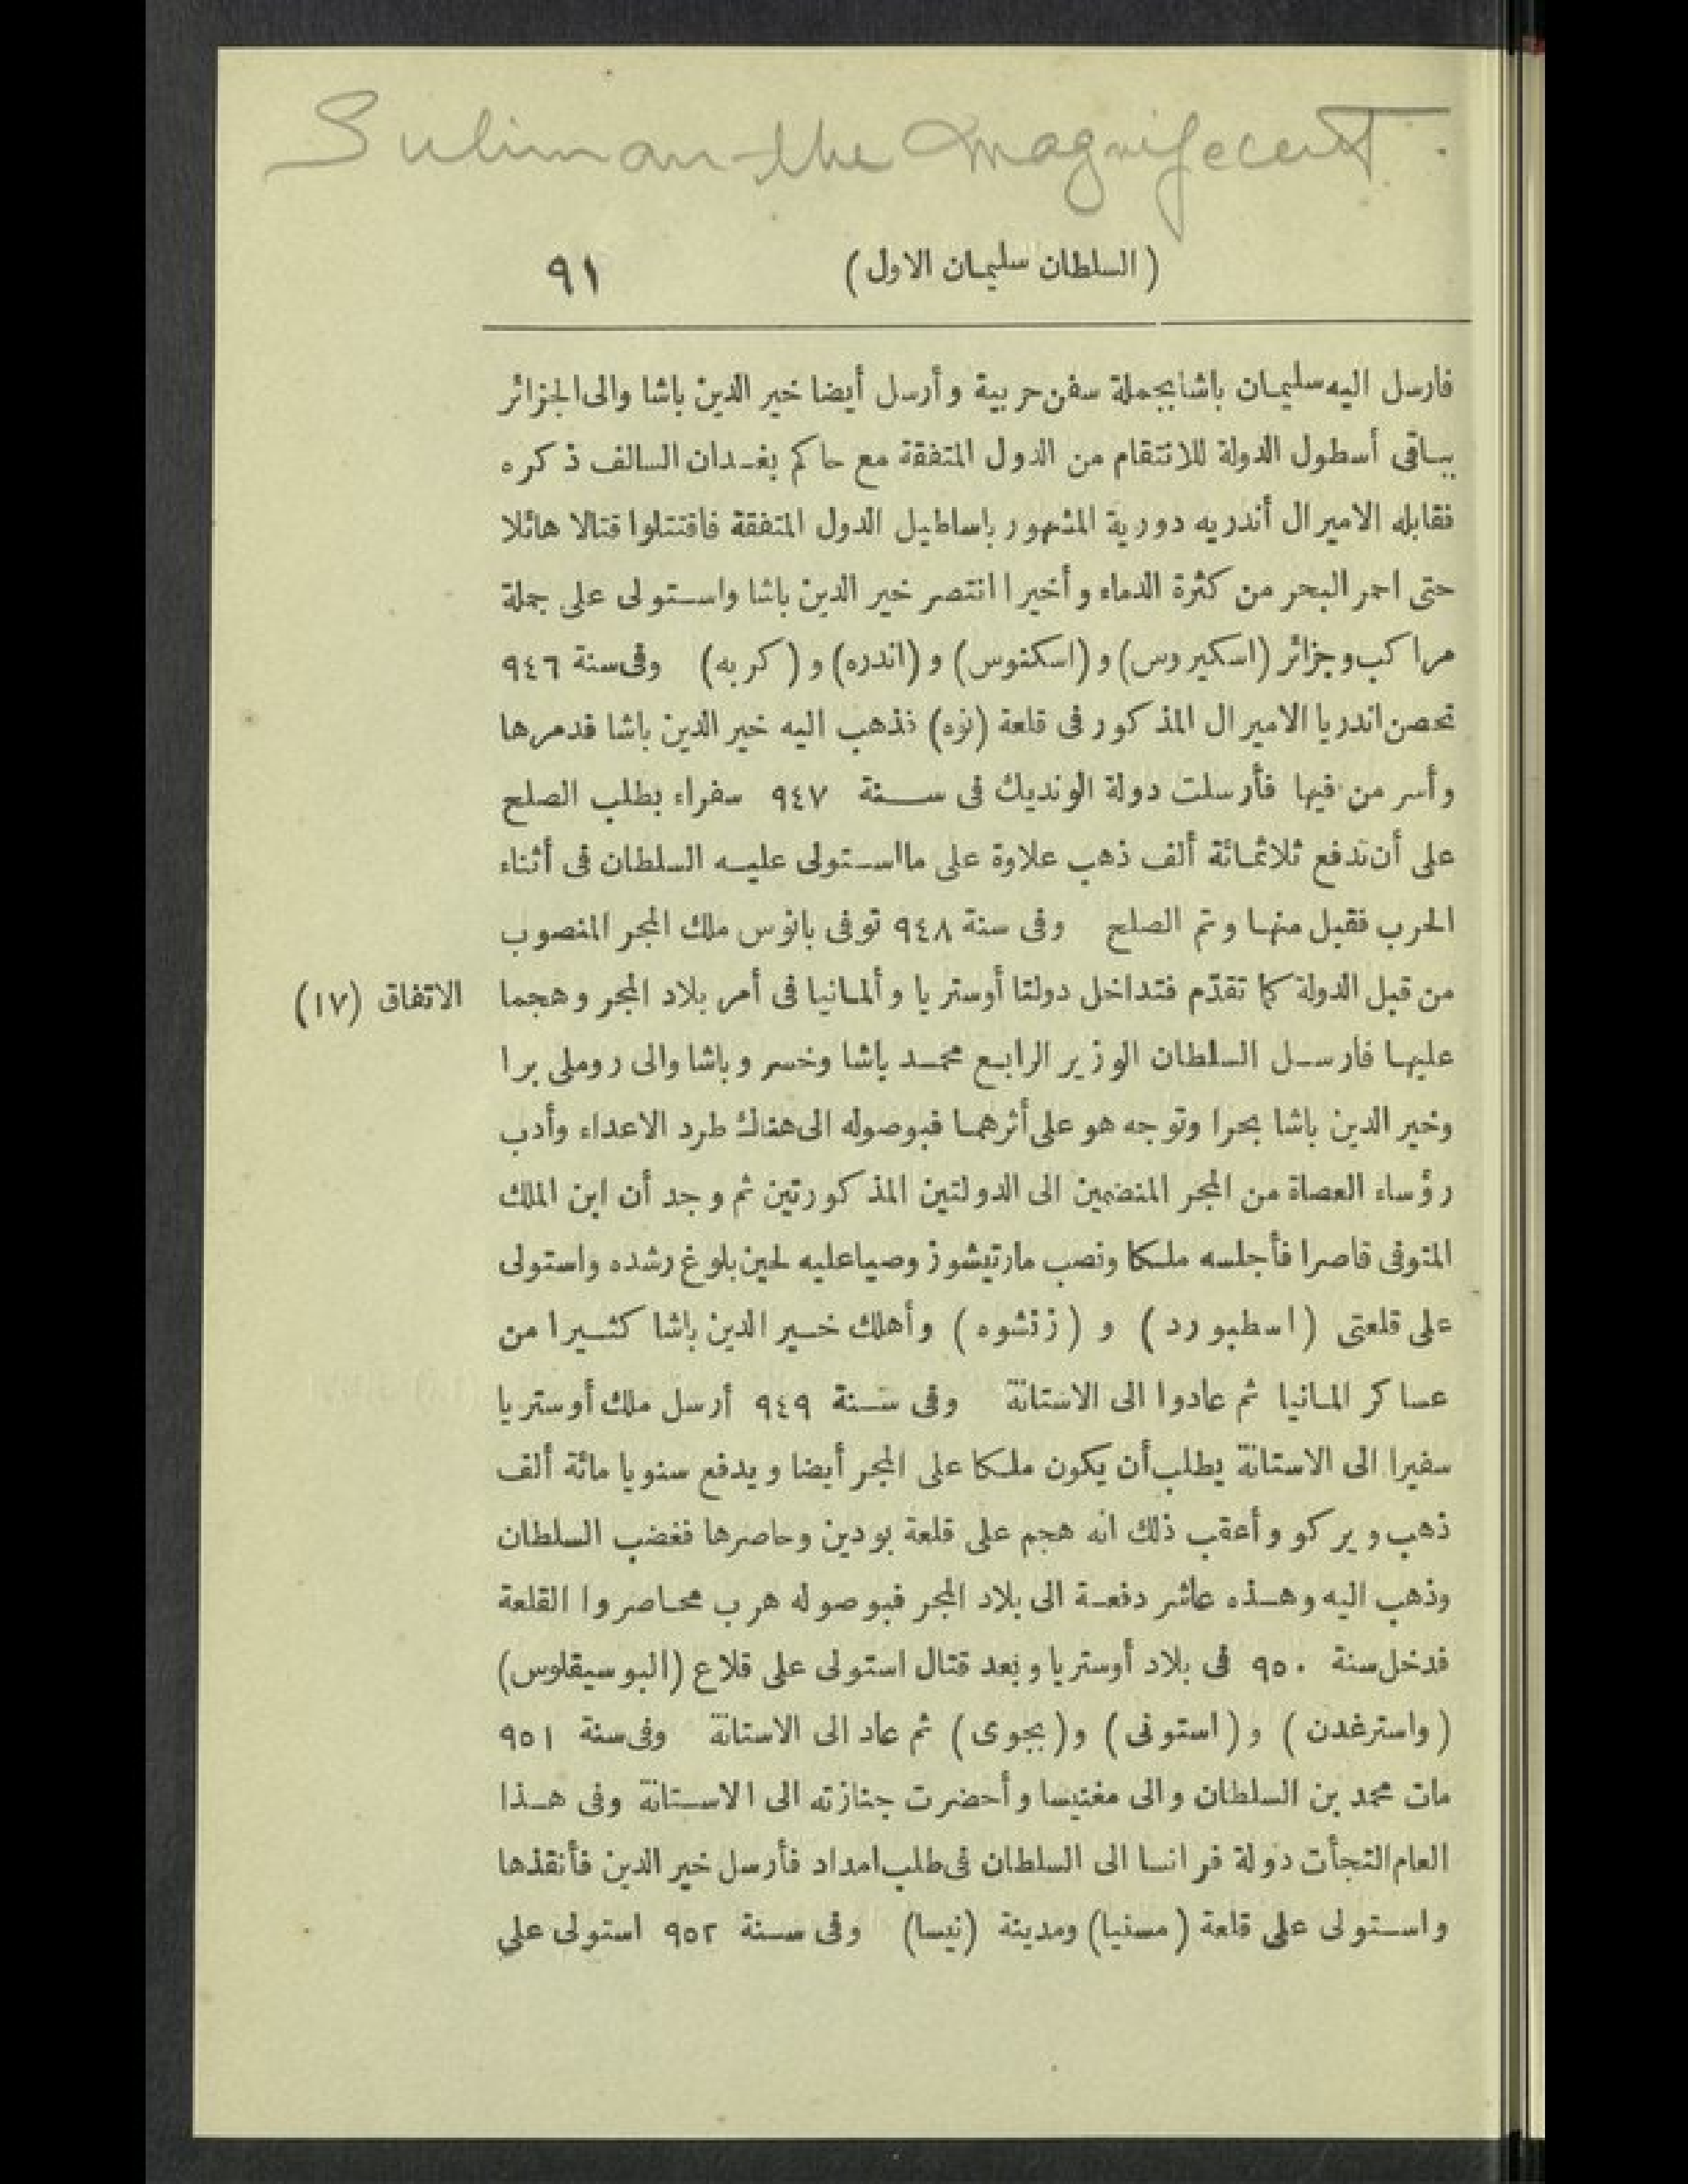 Suliman the Magnifecent.
(السلطان سليمان الاول) ٩١
فارسل اليه سليمان باشا بجملة سفن حربية وأرسل أيضا خير الدين باشا والى الجزائر
بباقى أسطول الدولة للانتقام من الدول المتفقة مع حاكم بغدان السالف ذكره
فقابله الاميرال أندريه دورية المشهور باساطيل الدول المتفقة فاقتتلوا قتالا هائلا
حتى احمر البحر من كثرة الدماء وأخيرا انتصر خير الدين باشا واستولى على جملة
مراكب وجزائر (اسكيروس) و (اسكتوس) و (اندره) و (كربه) وفى سنة ٩٤٦
تحصن اندريا الاميرال المذكور فى قلعة (نوه) فذهب اليه خير الدين باشا فدمرها
وأسر من فيها فأرسلت دولة الونديك فى سنة ٩٤٧ سفراء بطلب الصلح
على أن تدفع ثلاثمائة ألف ذهب علاوة على ما استولى عليه السلطان فى أثناء
الحرب فقبل منها وتم الصلح وفى سنة ٩٤٨ توفى يانوس ملك المجر المنصوب
من قبل الدولة كما تقدّم فتداخل دولتا أوستريا وألمانيا فى أمر بلاد المجر وهجما
الاتفاق (١٧)
عليها فارسل السلطان الوزير الرابع محمد باشا وخسرو باشا والى روملى برا
وخير الدين باشا بحرا وتوجه هو على أثرهما فبوصوله الى هناك طرد الاعداء وأدب
رؤساء العصاة من المجر المنضمين الى الدولتين المذكورتين ثم وجد أن ابن الملك
المتوفى قاصرا فأجلسه ملكا ونصب مارتيشوز وصيا عليه لحين بلوغ رشده واستولى
على قلعتى (اسطبورد) و (زنشوه) وأهلك خير الدين باشا كثيرا من
عساكر المانيا ثم عادوا الى الاستانة وفى سنة ٩٤٩ أرسل ملك أوستريا
سفيرا الى الاستانة يطلب أن يكون ملكا على المجر أيضا ويدفع سنويا مائة ألف
ذهب ويركو وأعقب ذلك انه هجم على قلعة بودين وحاصرها فغضب السلطان
وذهب اليه وهذه عاشر دفعة الى بلاد المجر فبوصوله هرب محاصروا القلعة
فدخل سنة ٩٥٠ فى بلاد أوستريا وبعد قتال استولى على قلاع (البوسيقلوس)
(واسترغدن) و (استونى) و (بجوى) ثم عاد الى الاستانة وفى سنة ٩٥١
مات محمد بن السلطان والى مغنيسا وأحضرت جنازته الى الاستانة وفى هذا
العام التجأت دولة فرانسا الى السلطان فى طلب امداد فأرسل خير الدين فأنقذها
واستولى على قلعة (مسنيا) ومدينة (نيسا) وفى سنة ٩٥٢ استولى على